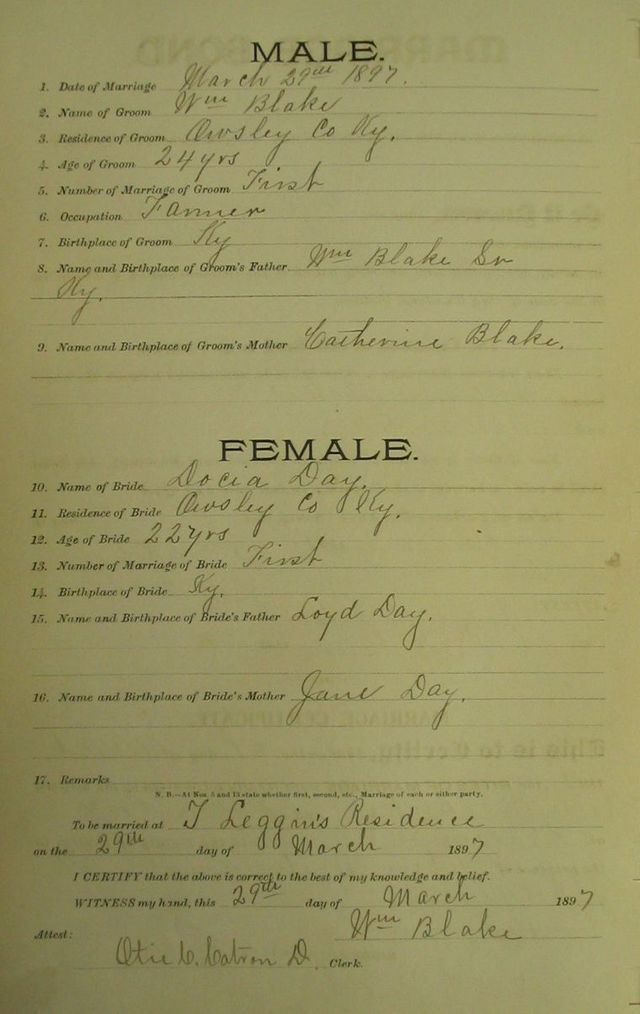 MALE.
1. Date of Marriage March 29th 1897.
2. Name of Groom Wm Blake
3. Residence of Groom Owsley Co Ky.
4. Age of Groom 24 yrs
5. Number of Marriage of Groom First
6. Occupation Farmer
7. Birthplace of Groom Ky
8. Name and Birthplace of Groom's Father Wm Blake Sr
Ky.
9. Name and Birthplace of Groom's Mother Catherine Blake.
FEMALE.
10. Name of Bride Docia Day.
11. Residence of Bride Owsley Co Ky.
12. Age of Bride 22 yrs
13. Number of Marriage of Bride First
14. Birthplace of Bride Ky.
15. Name and Birthplace of Bride's Father Loyd Day.
16. Name and Birthplace of Bride's Mother Jane Day.
17. Remarks
N. B.—At Nos. 5 and 13 state whether first, second, etc., Marriage of each or either party.
To be married at T Leggin's Residence
on the 29th day of March 1897
I CERTIFY that the above is correct to the best of my knowledge and belief.
WITNESS my hand, this 29th day of March 1897
Wm Blake
Attest:
C. Catron D. Clerk.